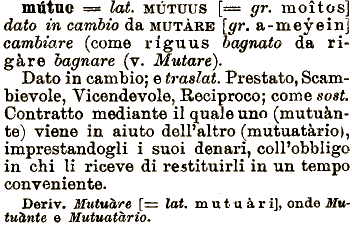 mútuo = lat. MÚTUUS [= gr. moîtos]
dato in cambio da MUTÀRE [gr. a-meýein]
cambiare (come ríguus bagnato da ri-
gàre bagnare (v. Mutare).
Dato in cambio; e traslat. Prestato, Scam-
bievole, Vicendevole, Reciproco; come sost.
Contratto mediante il quale uno (mutuàn-
te) viene in aiuto dell'altro (mutuatàrio),
imprestandogli i suoi denari, coll'obbligo
in chi li riceve di restituirli in un tempo
conveniente.
Deriv. Mutuàre [= lat. mutuàri], onde Mu-
tuànte e Mutuatàrio.